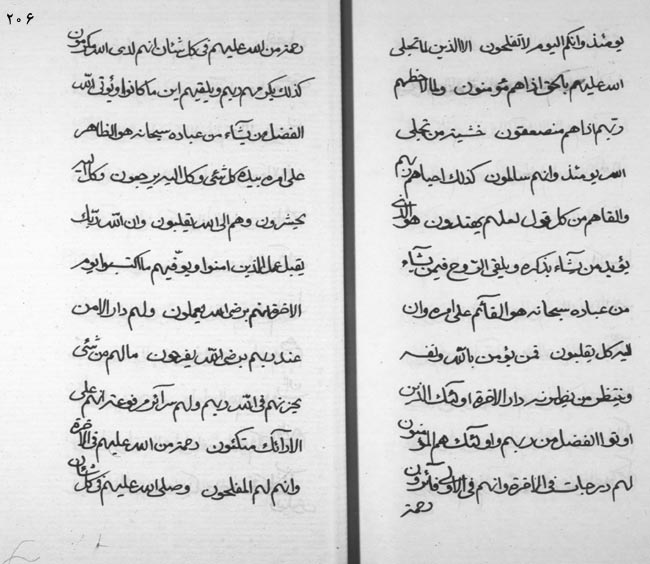 ٢٠۶
يومئذ وانكم اليوم لا تفلحون الا الذين لما تجلى
الله عليهم بالحق اذا هم مؤمنون ولما لاحظهم
ربهم اذا هم منصعقون خشية من تجلى
الله يومئذ وانهم ساملون كذلك احياهم ربهم
والقاهم من كل قول لعلهم يهتدون هو الذى
يؤيد من يشاء بذكره ويلقى الروح فيمن يشاء
من عباده سبحانه هو القآئم على امره وان
اليه كل يقلبون فمن يؤمن بالله ونفسه
دار الاخرة اولئك الذين
اوتوا الفضل من ربهم واولئك هم المؤمنون
لهم درجات فى الاخرة وانهم فى الاولى فآئزون
رحمة
رحمة من الله عليهم فى كل شئان انهم لدى الله مكرمون
كذلك يكرمهم ربهم ويلقيهم اين ما كانوا ويؤتى الله
الفضل من يشآء من عباده سبحانه هو الظاهر
على امره بيده كل شئى وكل اليه يرجعون وكل اليه
يحشرون وهم الى الله يقلبون وان الله ربك
يقبل عمل الذين امنوا ويوفيهم ما اكتسبوا يوم
الاخرة انهم برضى الله يعملون ولهم دار الامن
عند ربهم برضى الله يفرحون ما لهم من شئى
يحزنهم فى الله ربهم ولهم سرآئر مرفوعة انهم على
الارآئك متكئون رحمة من الله عليهم فى الاخرة
وانهم لهم المفلحون وصلى الله عليهم فى كل شئان